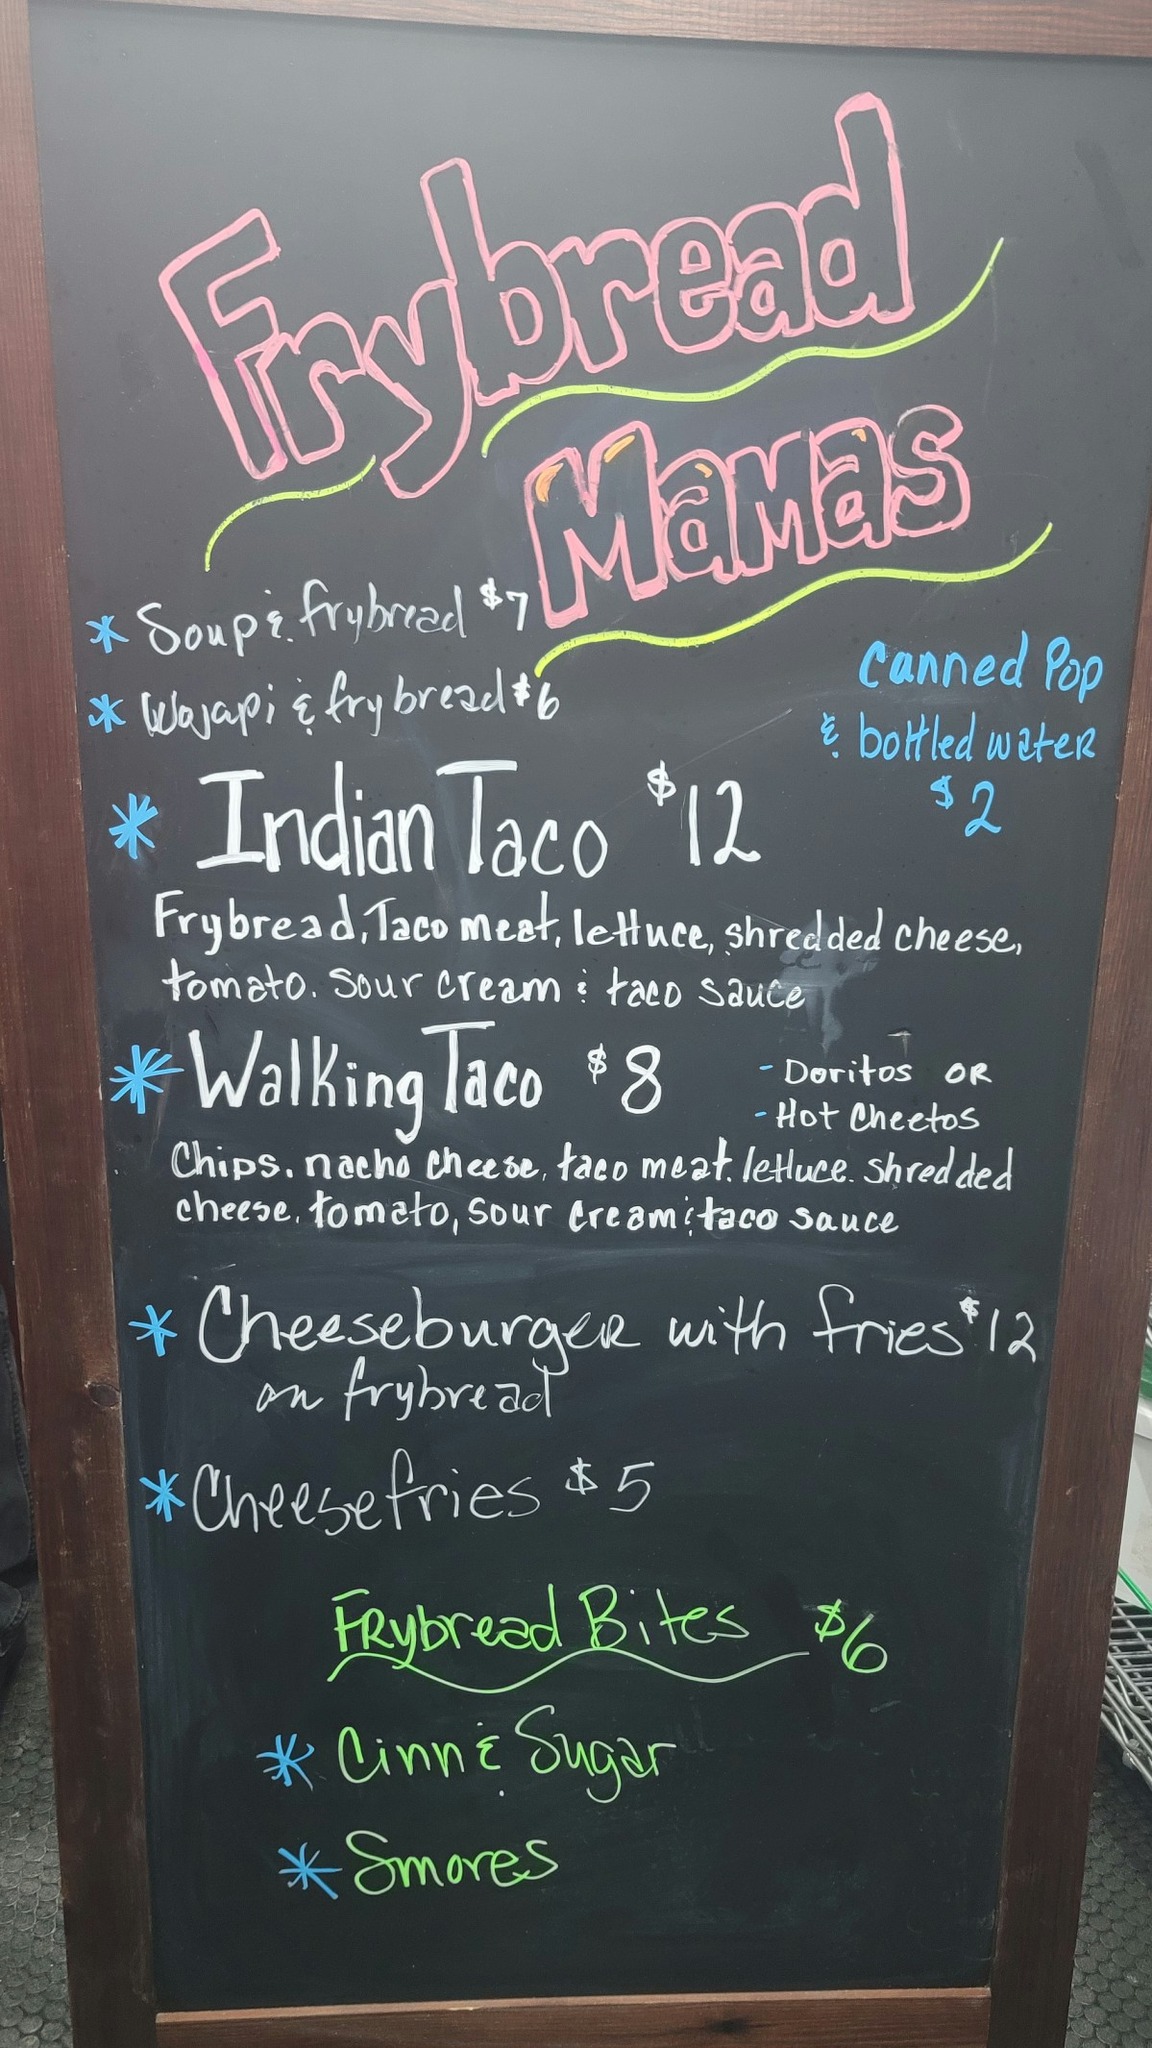 Frybread
Mamas
* Soup & frybread $7
* Wojapi & frybread $6
Canned Pop
& bottled water
$2
* Indian Taco $12
Frybread, Taco meat, lettuce, shredded cheese,
tomato. sour cream & taco sauce
* Walking Taco $8
- Doritos OR
- Hot Cheetos
Chips, nacho cheese, taco meat. lettuce. shredded
cheese, tomato, sour cream & taco sauce
* Cheeseburger with fries $12
on frybread
* Cheesefries $5
Frybread Bites $6
* Cinn & Sugar
* Smores